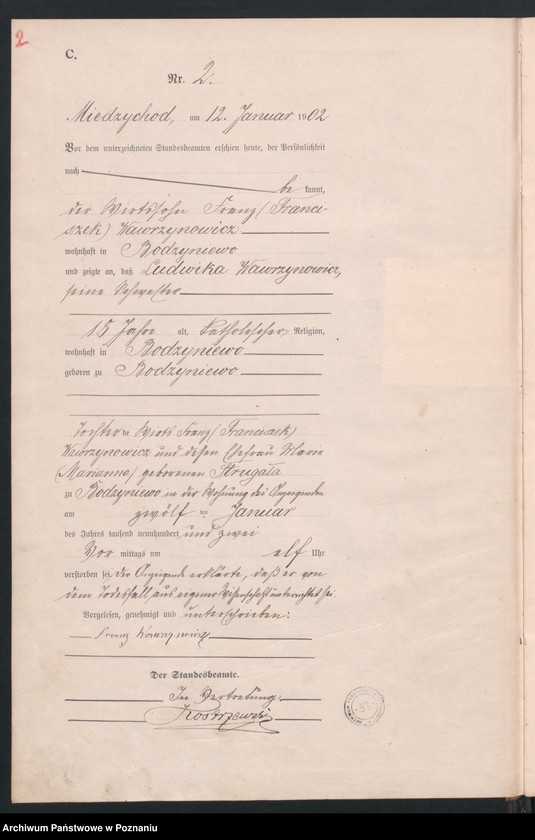 2
C.
Nr. 2.
Miedzychod, am 12. Januar 1902
Vor dem unterzeichneten Standesbeamten erschien heute, der Persönlichkeit
nach be kannt,
der Wirtssohn Franz (Franci-
szek) Wawrzynowicz
wohnhaft in Bodzyniewo
und zeigte an, daß Ludwika Wawrzynowicz,
seine Schwester
15 Jahre alt, katholischer Religion,
wohnhaft in Bodzyniewo
geboren zu Bodzyniewo
Tochter de Wirts Franz (Franciszek)
Wawrzynowicz und dessen Ehefrau Marie
(Marianna) geborenen Strugała
zu Bodzyniewo in der Wohnung des Anzeigenden
am zwölf ten Januar
des Jahres tausend neunhundert und zwei
Vor mittags um elf Uhr
verstorben sei, der Anzeigende erklärte, daß er von
dem Todesfall aus eigener Wissenschaft unterrichtet sei.
Vorgelesen, genehmigt und unterschrieben:
Franz
Der Standesbeamte.
In Vertretung.
Kostrzewski
Archiwum Państwowe w Poznaniu